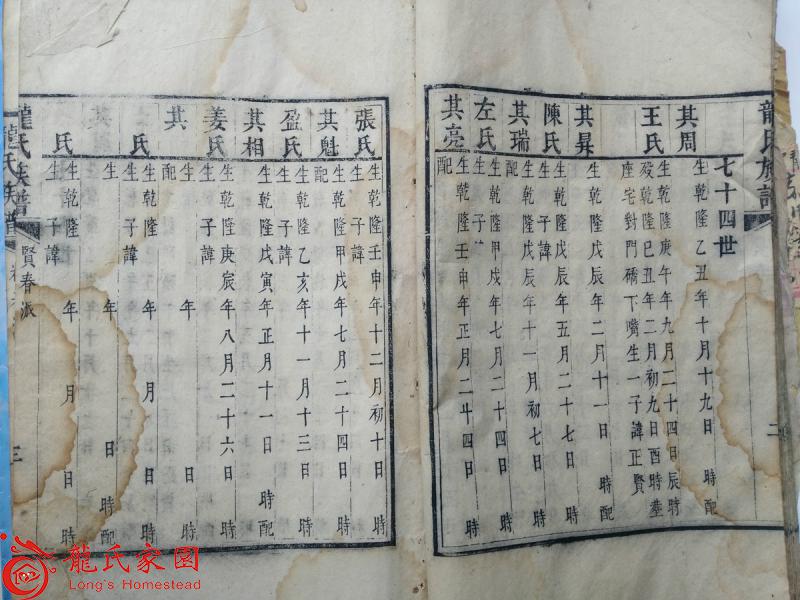 龍氏族譜
二
七十四世
其周 生乾隆乙丑年十月十九日 時配
王氏 生乾隆庚午年九月二十四日辰時
歿乾隆己丑年二月初九日酉時塟
座宅對門礄下嘴生一子諱正賢
其昇 生乾隆戊辰年二月十一日 時配
陳氏 生乾隆戊辰年五月二十七日 時
生 子諱
其瑞 生乾隆戊辰年十一月初七日 時配
左氏 生乾隆甲戌年七月二十四日 時
生 子諱
其亮 生乾隆壬申年正月二十四日 時配
張氏 生乾隆壬申年十二月初十日 時
生 子諱
其魁 生乾隆甲戌年七月二十四日 時配
盈氏 生乾隆乙亥年十一月十三日 時
生 子諱
其相 生乾隆戊寅年正月十一日 時配
姜氏 生乾隆庚辰年八月二十六日 時
生 子諱
其 生乾隆 年 月 日 時配
氏 生乾隆 年 月 日 時
生 子諱
其 生 年 日 時配
氏 生乾隆 年 月 日 時
生 子諱
龍氏族譜
賢春派
三
龍氏族譜
龍氏家園
Long's Homestead